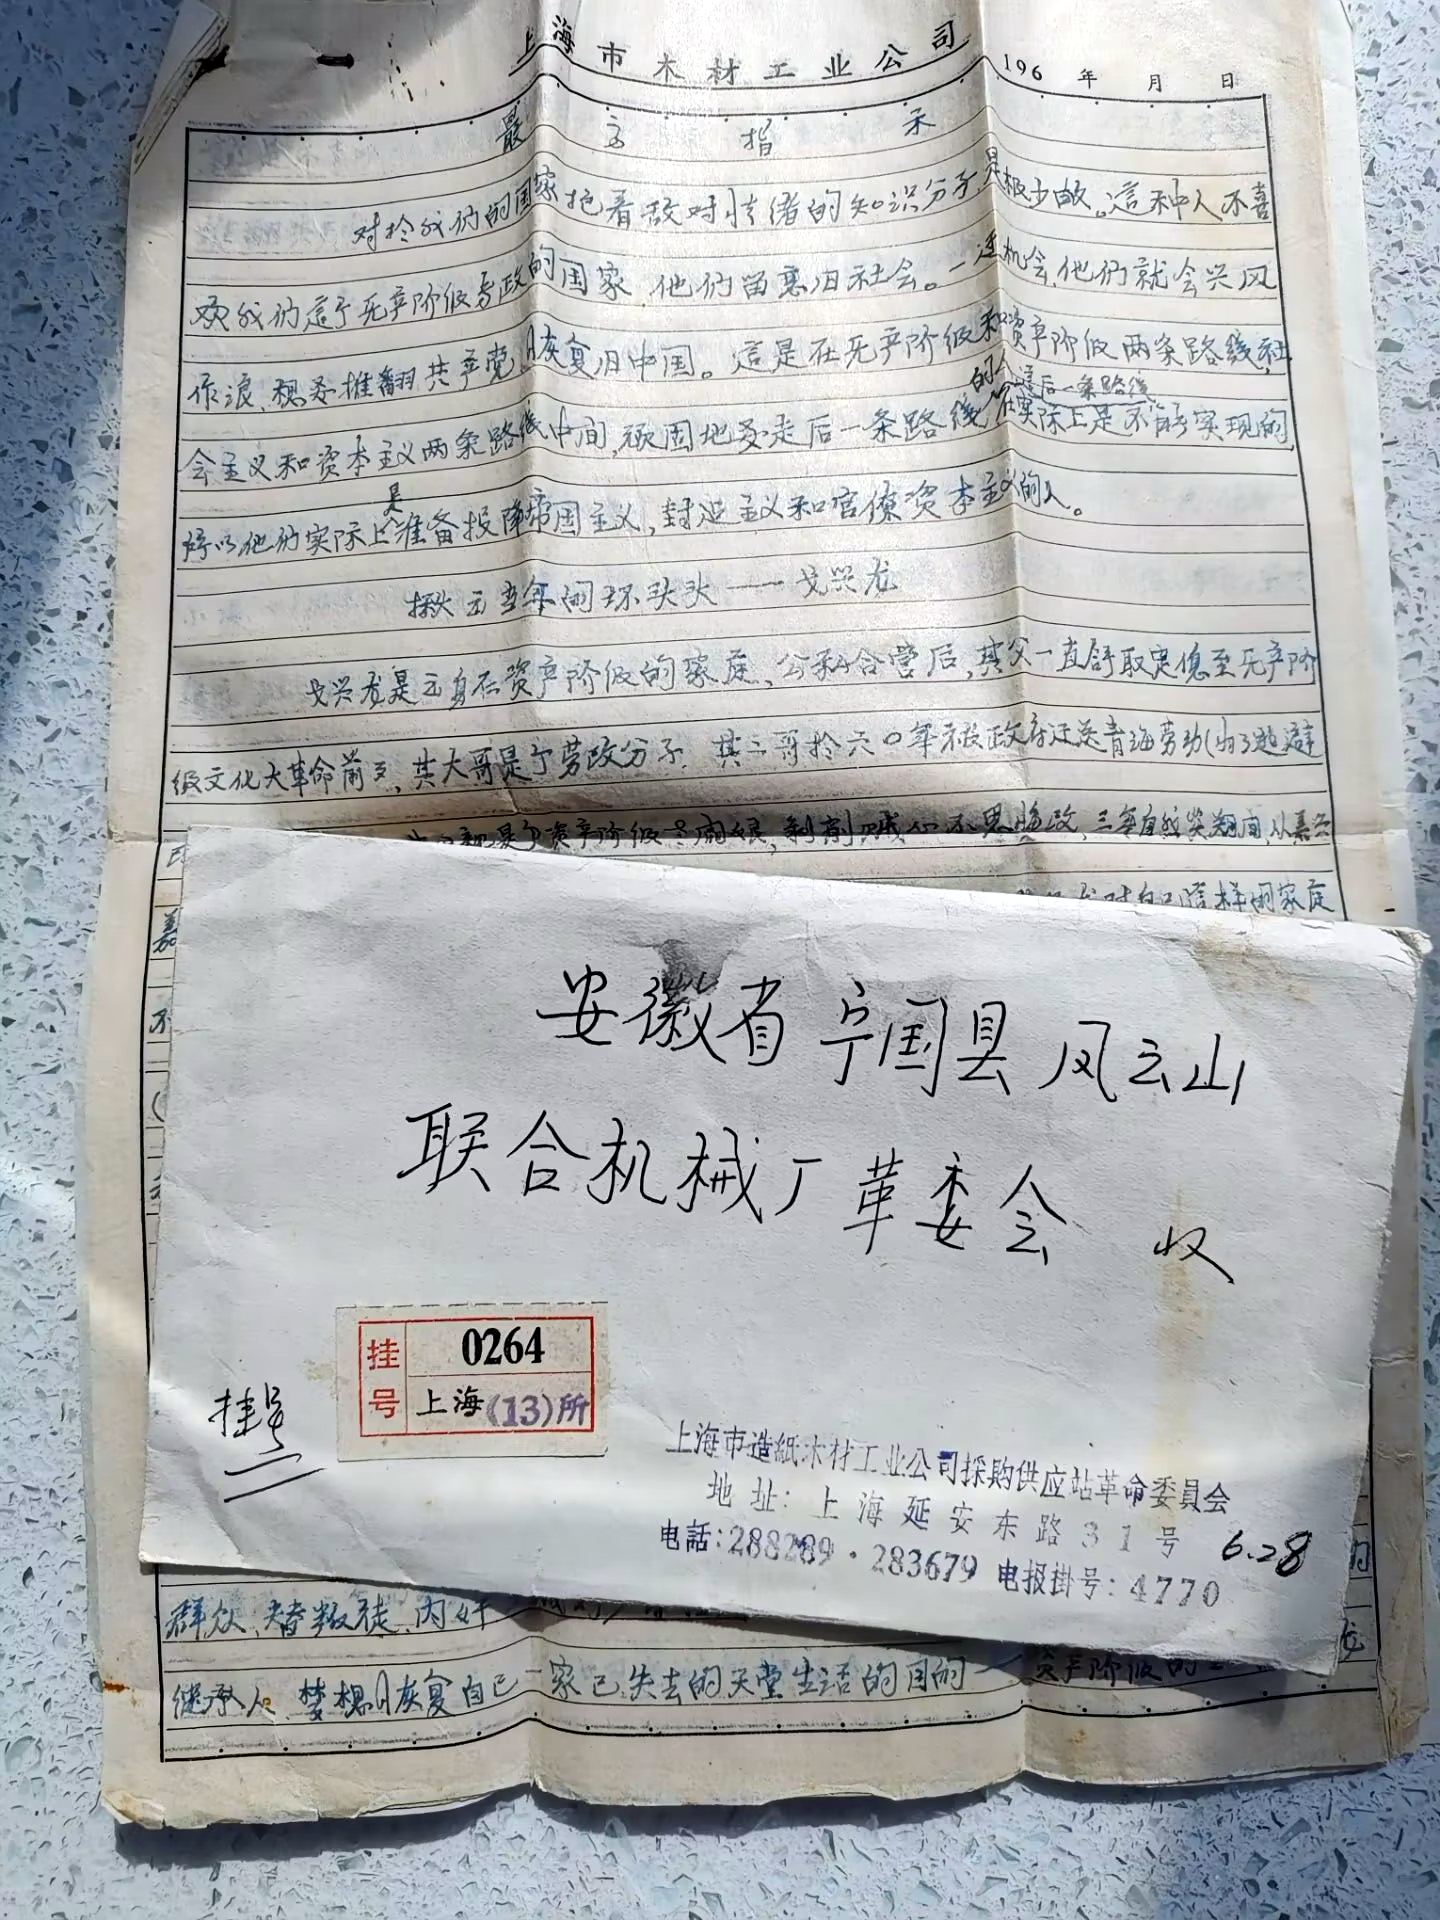 上海市木材工业公司 196 年 月 日
最高指示
对于我们的国家抱着敌对情绪的知识分子,是极少数。這种人不喜
欢我们這个无产阶级专政的国家,他们留恋旧社会。一遇机会,他们就会兴风
作浪,想要推翻共产党,恢复旧中国。這是在无产阶级和资产阶级两条路线,社
会主义和资本主义两条路线中间,顽固地要走后一条路线的人。這后一条路线在实际上是不能实现的,
所以他们实际上是准备投降帝国主义,封建主义和官僚资本主义的人。
揪出当年的坏头头——戈兴龙
戈兴龙是出身在资产阶级的家庭,公私合营后,其父一直领取定息至无产阶
级文化大革命前夕,其大哥是个劳改分子,其二哥于六〇年被政府迁送青海劳动(为了逃避
是个资产阶级
对自己這样的家庭
嘉
不
群众,替叛徒,内奸
继承人,梦想恢复自己一家已失去的天堂生活的目的— 资产阶级的
安徽省宁国县凤云山
联合机械厂革委会 收
挂号 0264
上海(13)所
挂号
上海市造紙木材工业公司採购供应站革命委員会
地址:上海延安东路31号
电話:288289·283679 电报掛号:4770
6.28